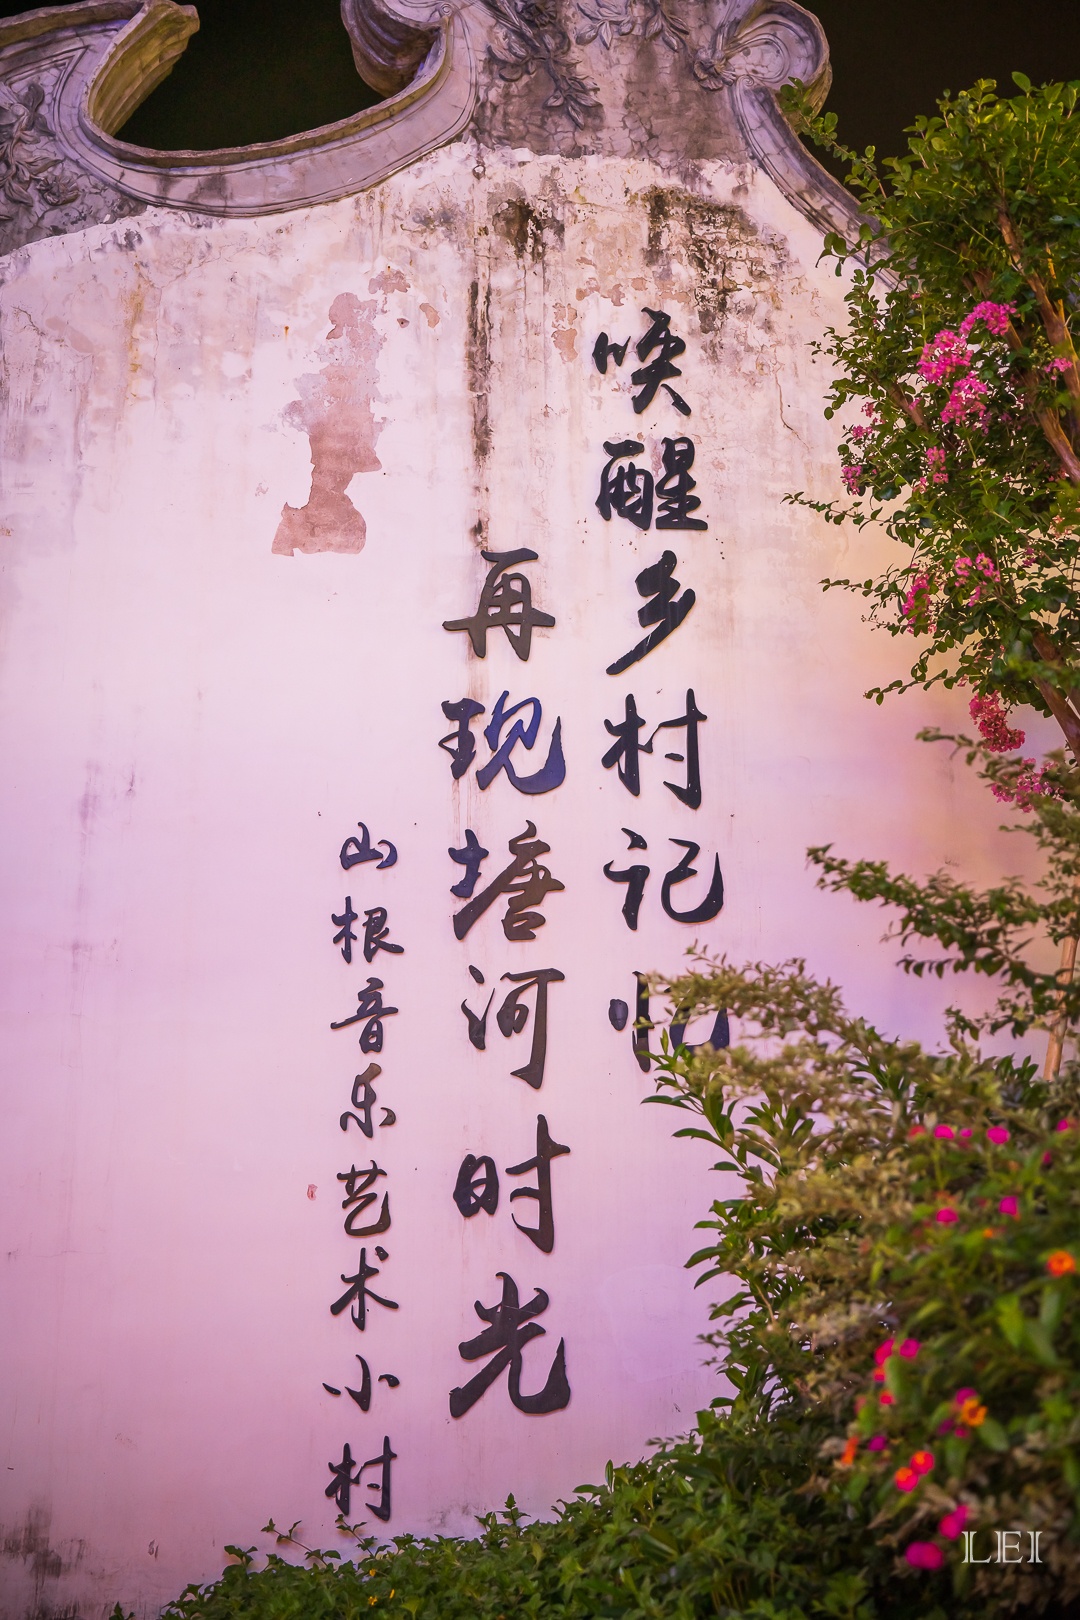 唤醒乡村记忆
再现塘河时光
山根音乐艺术小村
LEI